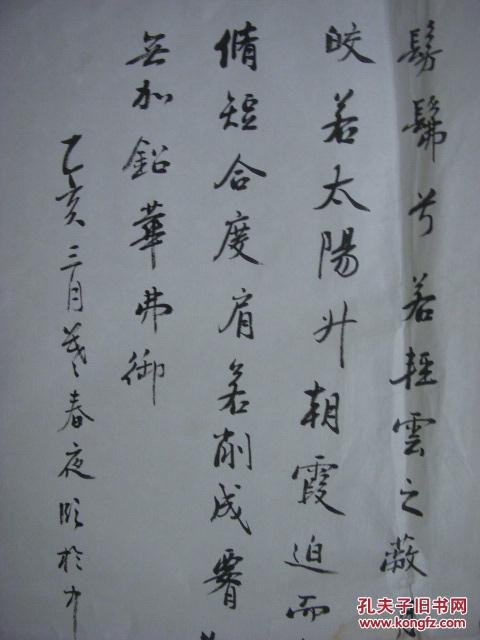 髣髴兮若輕雲之蔽
皎若太陽升朝霞迫而
脩短合度肩若削成
無加鉛華弗御
乙亥三月春夜於
孔夫子旧书网
www.kongfz.com